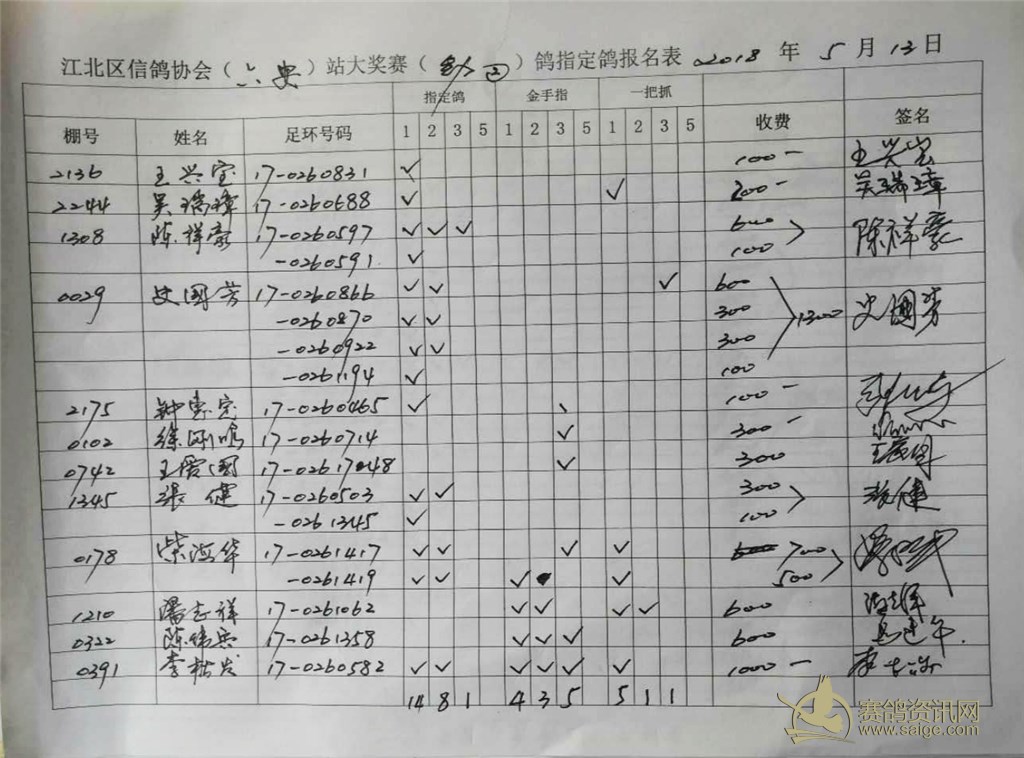 江北区信鸽协会（六安）站大奖赛（）鸽指定鸽报名表 2018 年 5 月 13 日
指定鸽 金手指 一把抓
棚号 姓名 足环号码 1 2 3 5 1 2 3 5 1 2 3 5 收费 签名
2136 王兴宝 17-0260831 ✓ 100- 王兴宝
2244 吴瑞璋 17-0260688 ✓ ✓ 200- 吴瑞璋
1308 陈祥豪 17-0260597 ✓ ✓ ✓ 600 陈祥豪
-0260591 ✓ 100
0029 史国芳 17-0260866 ✓ ✓ ✓ 600 1300 史國芳
-0260870 ✓ ✓ 300
-0260922 ✓ ✓ 300
-0261194 ✓ 100
2175 钟惠宝 17-0260465 ✓ 100-
0102 徐刚鸣 17-0260714 ✓ 300-
0742 王爱国 17-02617048 ✓ 300
1345 張健 17-0260503 ✓ ✓ 300 张健
-0261345 ✓ 100
0178 柴海华 17-0261417 ✓ ✓ ✓ ✓ 700
-0261419 ✓ ✓ ✓ ✓ 500
1210 潘志祥 17-0261062 ✓ ✓ ✓ ✓ 600
0322 陈伟兵 17-0261358 ✓ ✓ ✓ 600
0391 李 17-0260582 ✓ ✓ ✓ ✓ ✓ ✓ 1000-
14 8 1 4 3 5 5 1 1
赛鸽资讯网
www.saige.com